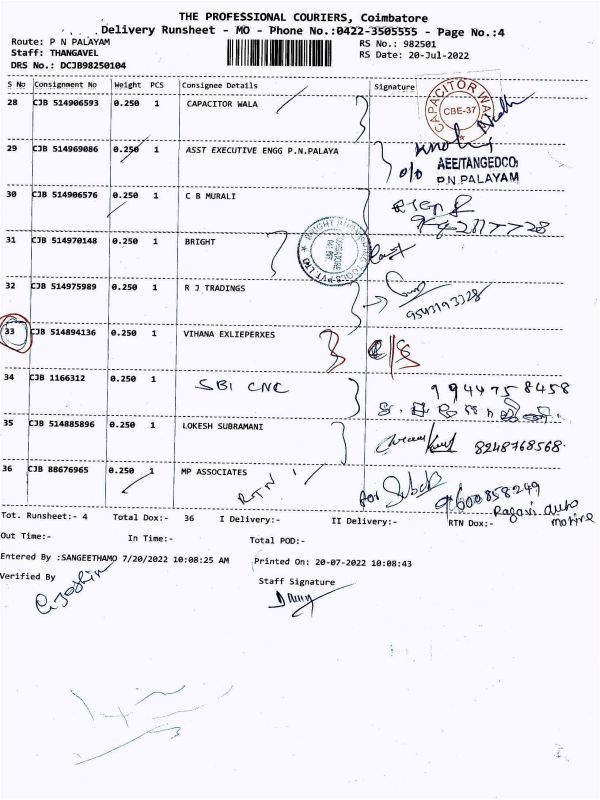 THE PROFESSIONAL COURIERS, Coimbatore
Delivery Runsheet - MO - Phone No.:0422-3505555 - Page No.:4
Route: P N PALAYAM
Staff: THANGAVEL
DRS No.: DCJB98250104
RS No.: 982501
RS Date: 20-Jul-2022
S No Consignment No Weight PCS Consignee Details Signature
28 CJB 514906593 0.250 1 CAPACITOR WALA
CAPACITOR WALA
CBE-37
29 CJB 514969086 0.250 1 ASST EXECUTIVE ENGG P.N.PALAYA
o/o AEE/TANGEDCO
P.N.PALAYAM
30 CJB 514906576 0.250 1 C B MURALI
31 CJB 514970148 0.250 1 BRIGHT
32 CJB 514975989 0.250 1 R J TRADINGS
9543193328
33 CJB 514894136 0.250 1 VIHANA EXLIEPERXES
34 CJB 1166312 0.250 1 SBI CNC
9944758458
35 CJB 514885896 0.250 1 LOKESH SUBRAMANI
8248768568
36 CJB 88676965 0.250 1 MP ASSOCIATES
RTN
for
9600858249
Ragavi auto
motive
Tot. Runsheet:- 4 Total Dox:- 36 I Delivery:- II Delivery:- RTN Dox:-
Out Time:- In Time:- Total POD:-
Entered By :SANGEETHAMO 7/20/2022 10:08:25 AM Printed On: 20-07-2022 10:08:43
Verified By Staff Signature